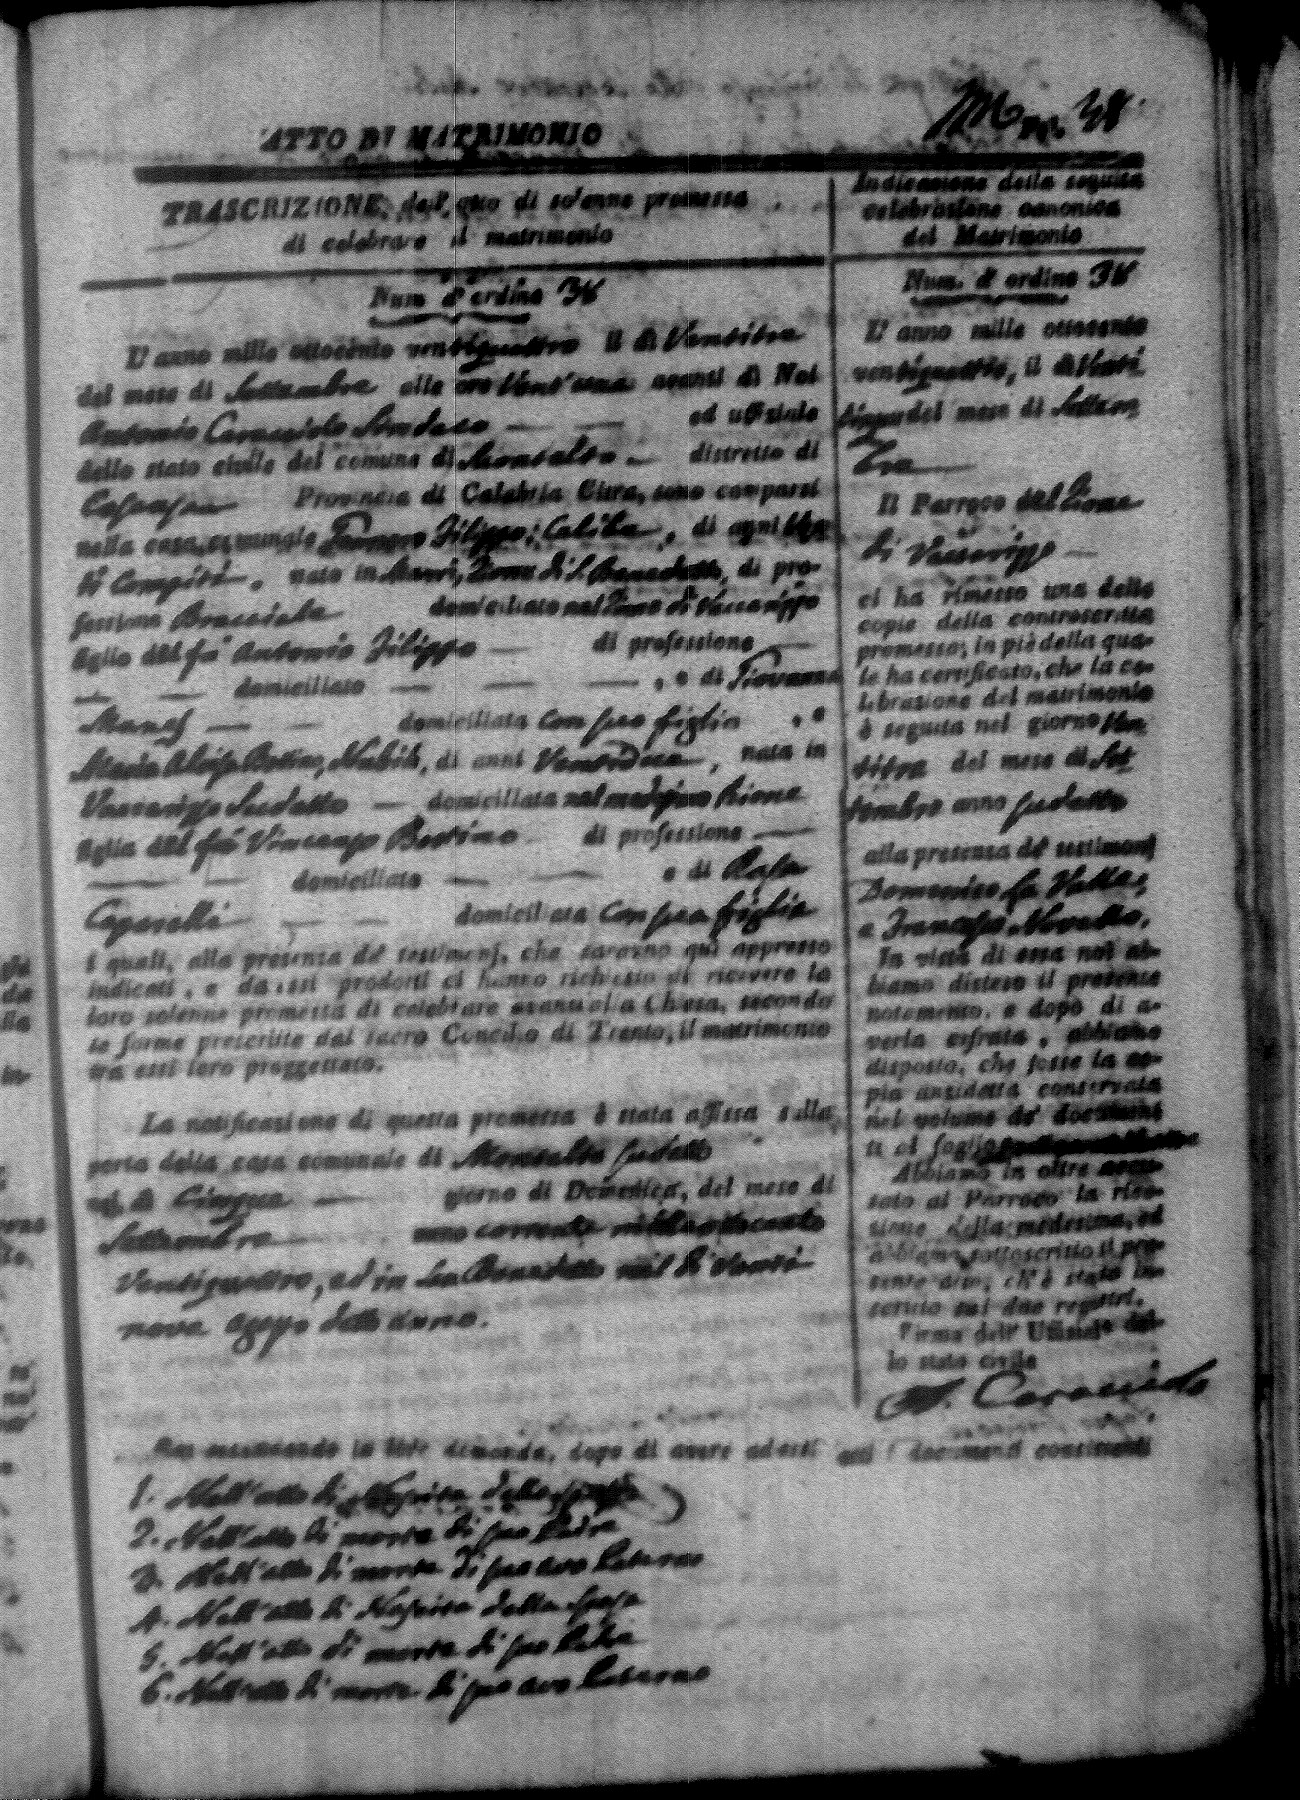 ATTO DI MATRIMONIO
TRASCRIZIONE dell'atto di solenne promessa
di celebrare il matrimonio
Num. d'ordine 38
L'anno mille ottocento ventiquattro il di Ventitre
del mese di Settembre alle ore avanti di Noi
Antonio Caracciolo Sindaco ed uffiziale
dello stato civile del comune di Montalto distretto di
Cosenza Provincia di Calabria Citra, sono comparsi
nella casa comunale Filippo, di anni Ven
ti Compiti nato in di S. Benedetto, di pro-
fessione Bracciale domiciliato nel Rione di Vaccarizzo
figlio del fu Antonio Filippo di professione
domiciliato , e di Giovanna
domiciliata con suo figlio , e
Maria Nubile, di anni , nata in
Vaccarizzo sudetto domiciliata nel medesimo Rione
figlia del fu Vincenzo di professione
domiciliato e di Rosa
Caparelli domiciliata con sua figlia
i quali, alla presenza de' testimonj, che saranno qui appresso
indicati, e da essi prodotti ci hanno richiesto di ricevere la
loro solenne promessa di celebrare avanti alla Chiesa, secondo
le forme prescritte dal sacro Concilio di Trento, il matrimonio
tra essi loro proggettato.
La notificazione di questa promessa è stata affissa sulla
porta della casa comunale di Montalto sudetto
nel di Cinque giorno di Domenica, del mese di
Settembre anno corrente mille ottocento
Ventiquattro, ed in San Benedetto nel di Venti
nove agosto detto anno.
Indicazione della seguita
celebrazione canonica
del Matrimonio
Num. d'ordine 38
L'anno mille ottocento
ventiquattro, il di Venti
cinque del mese di Settem
bre
Il Parroco del Rione
di Vaccarizzo
ci ha rimesso una delle
copie della controscritta
promessa; in piè della qua-
le ha certificato, che la ce-
lebrazione del matrimonio
è seguita nel giorno Ven
titre del mese di Set
tembre anno sudetto
alla presenza de' testimonj
Domenico La Valle,
e Francesco Novello.
In vista di essa noi ab-
biamo disteso il presente
notamento, e dopo di a-
verla cifrata, abbiamo
disposto, che fosse la co-
pia anzidetta conservata
nel volume de' documen-
ti al foglio
Abbiamo in oltre accu-
sato al Parroco la rice-
zione della medesima, ed
abbiamo sottoscritto il pre-
sente atto, ch'è stato in-
scritto sui due registri.
Firma dell' Uffiziale del-
lo stato civile
A. Caracciolo
Noi secondando la loro dimanda, dopo di avere ad essi letti i documenti consistenti
1. Nell'atto di Nascita dello sposo
2. Nell'atto di morte di suo Padre
3. Nell'atto di morte di suo avo Paterno
4. Nell'atto di Nascita della sposa
5. Nell'atto di morte di suo Padre
6. Nell'atto di morte di suo avo Paterno